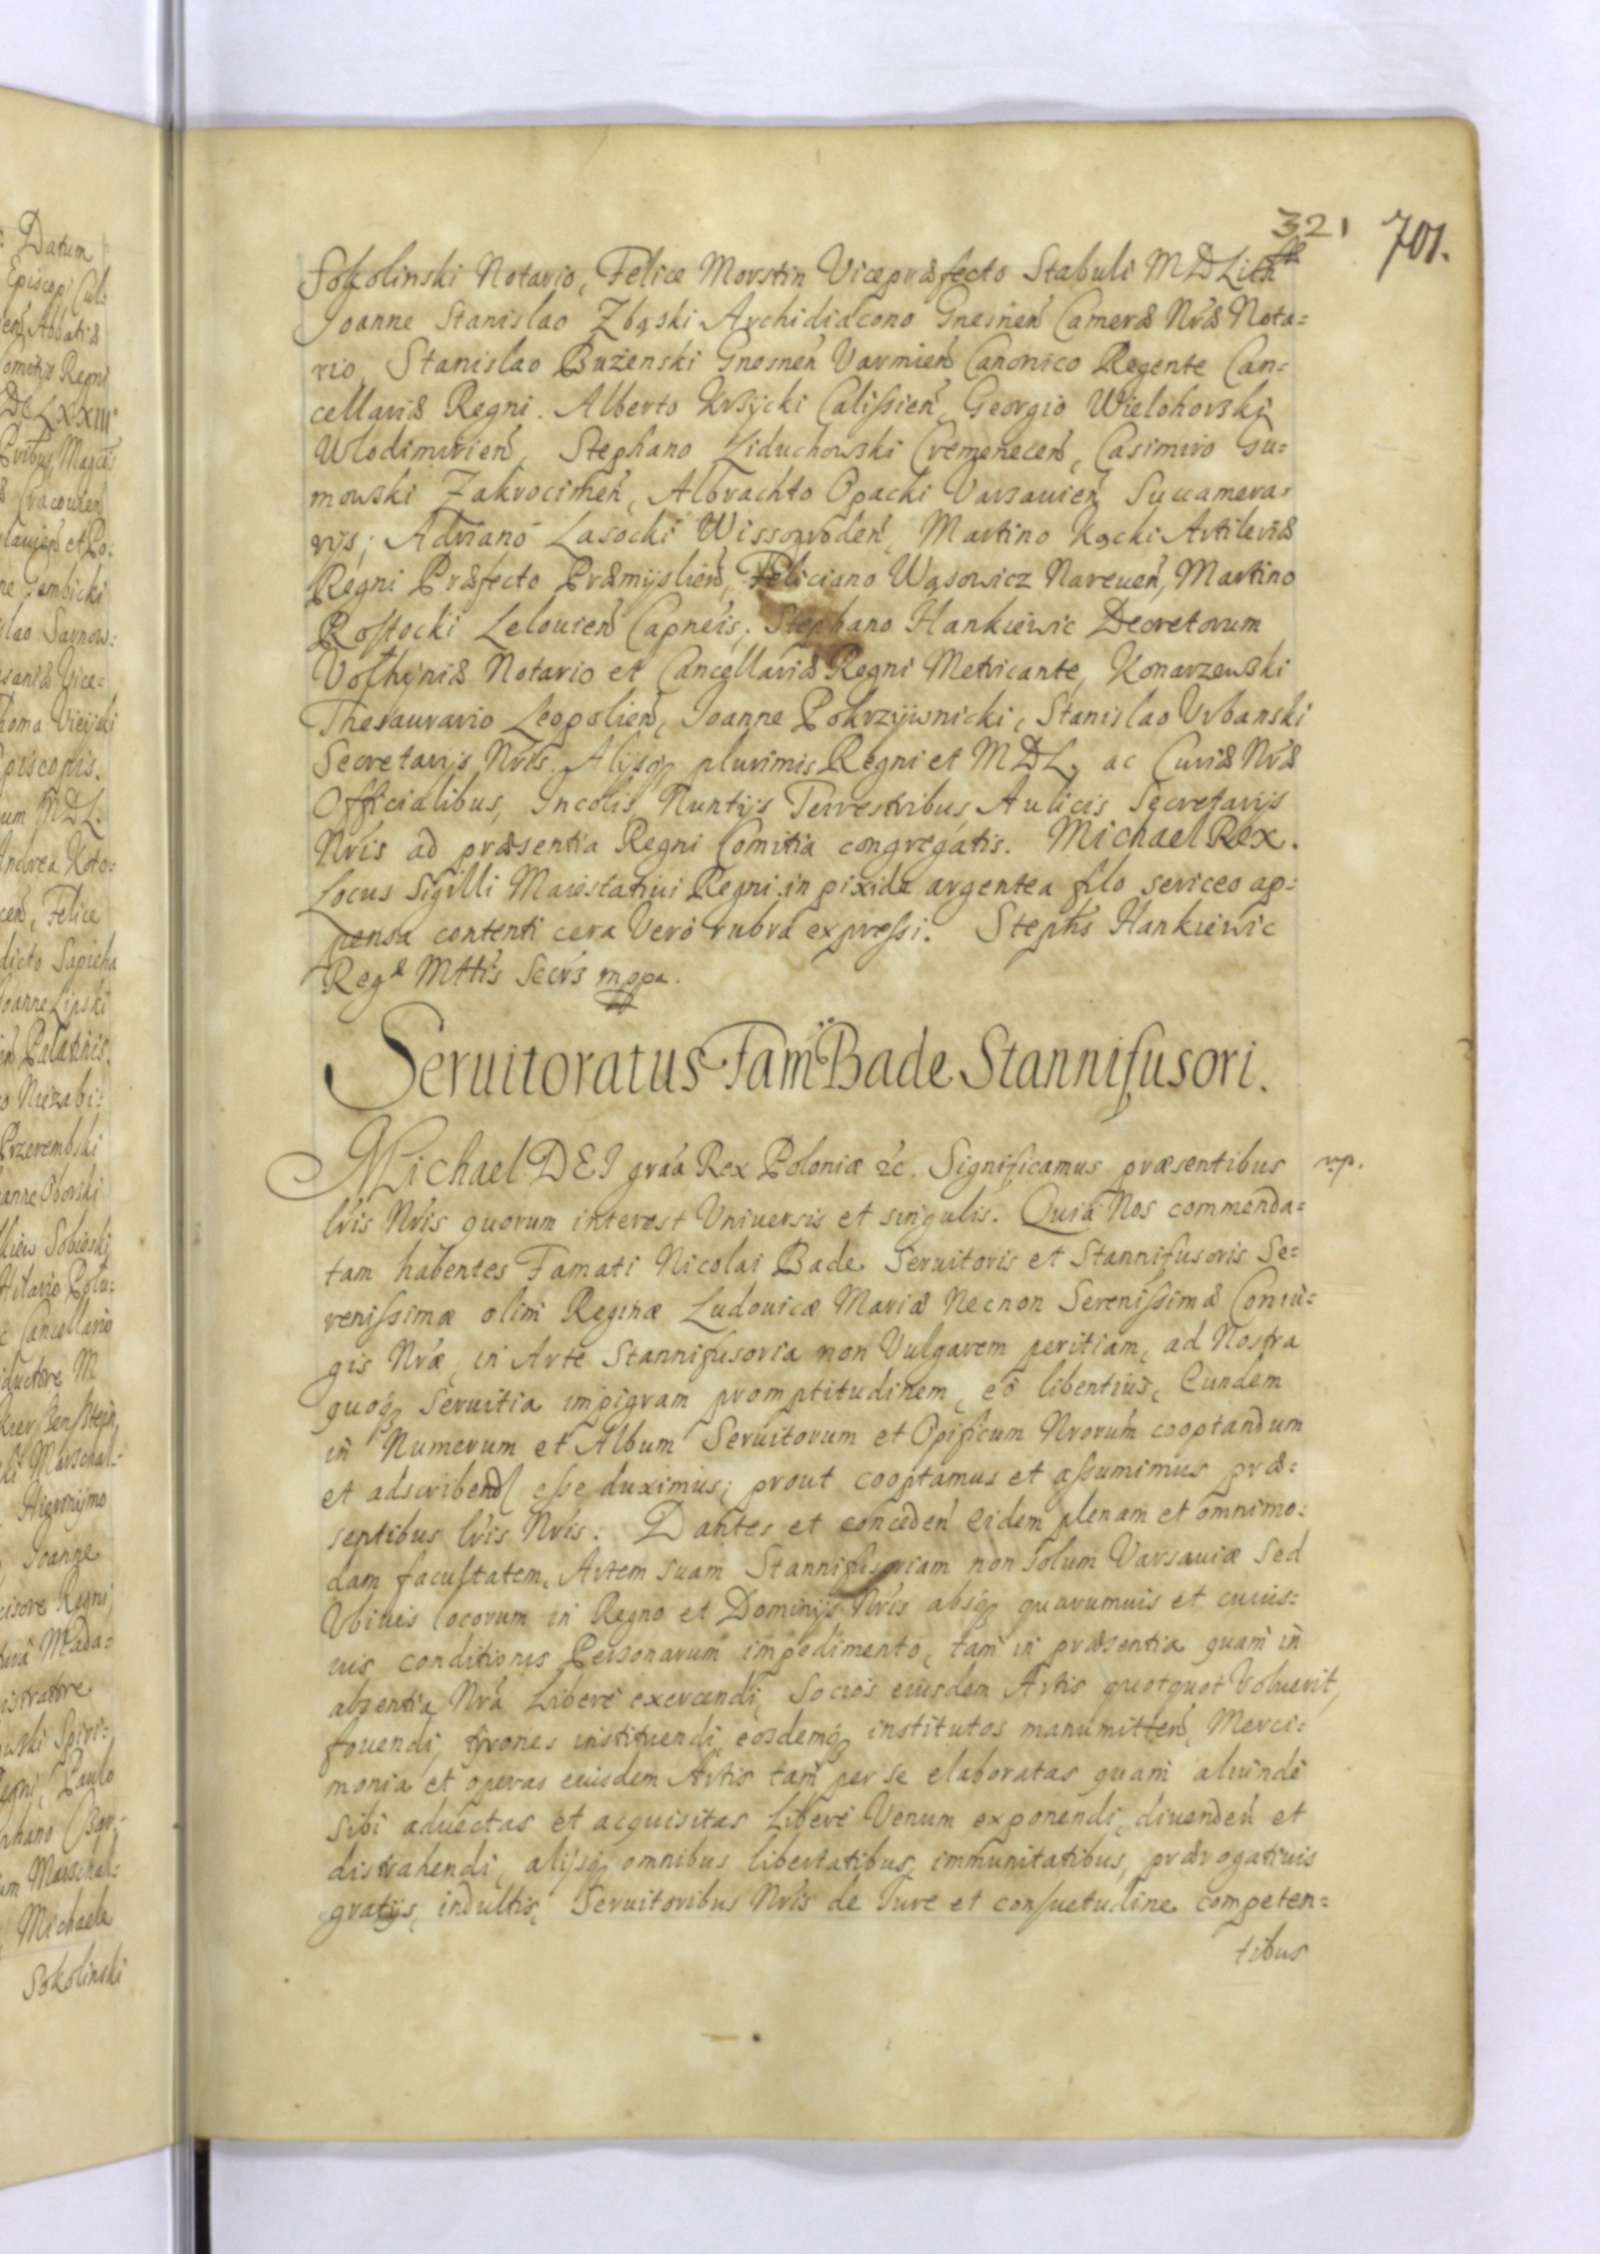 321 701.
Sokolinski Notario, Felice Morstin Vicepræfecto Stabuli MDLith
Joanne Stanislao Zbąski Archidiacono Gnesnen̄ Cameræ Nræ Nota=
rio, Stanislao Bużenski Gnesnen̄ Varmien̄ Canonico Regente Can=
cellariæ Regni. Alberto Krzycki Calissien̄, Georgio Wielohorski
Wlodimirien̄, Stephano Liduchowski Cremenecen̄, Casimiro Gu=
mowski Zakrocimen̄, Albrachto Opacki Varsavien̄ Succamera=
rijs; Adriano Lasocki Wissogroden̄, Martino Kącki Artileriæ
Regni Præfecto Præmyslien̄, Feliciano Wąsowicz Nareuen̄, Martino
Rostocki Lelouien̄ Capneis; Stephano Hankiewic Decretorum
Volhyniæ Notario et Cancellariæ Regni Metricante, Konarzewski
Thesaurario Leopolien̄, Joanne Pokrzywnicki, Stanislao Urbanski
Secretarijs Nris. Alijsq plurimis Regni et MDL. ac Curiæ Nræ
Officialibus, Incolis Nuntijs Terrestribus Aulicis Secretarijs
Nris ad præsentia Regni Comitia congregatis. Michael Rex.
Locus Sigilli Maiestatiui Regni in pixide argentea filo sericeo ap=
pensa contenti cera Vero rubra expressi. Stephs Hankiewic
Regæ Mttis Secrs mppa.
Seruitoratus Fam̄ Bade Stannifusori.
Michael DEI graa Rex Poloniæ &c. Significamus præsentibus
lris Nris quorum interest Vniuersis et singulis. Quia Nos commenda=
tam habentes Famati Nicolai Bade Seruitoris et Stannifusoris Se=
renissimæ olim Reginæ Ludouicæ Mariæ Necnon Serenissimæ Coniu=
gis Nræ, in Arte Stannifusoria non Vulgarem peritiam, ad Nostra
quoq Seruitia impigram promptitudinem, eo libentius, Eundem
in Numerum et Album Seruitorum et Opificum Nrorum cooptandum
et adscribend esse duximus; prout cooptamus et assumimus præ=
sentibus lris Nris: Dantes et conceden̄ Eidem plenam et omnimo=
dam facultatem, Artem suam Stannifusoriam non solum Varsauiæ sed
Vbiuis locorum in Regno et Dominijs Nris absq quarumuis et cuius=
uis conditionis Personarum impedimento, tam in præsentia quam in
absentia Nra Libere exercendi, Socios eiusdem Artis quotquot Voluerit,
fouendi, tyrones instituendi, eosdemq institutos manumitten̄, Merci=
monia et operas eiusdem Artis tam per se elaboratas quam aliunde
sibi aduectas et acquisitas Libere Venum exponendi, diuenden̄ et
distrahendi, alijsq omnibus libertatibus, immunitatibus, prærogatiuis
gratijs, indultis, Seruitoribus Nris de Jure et consuetudine competen=
tibus